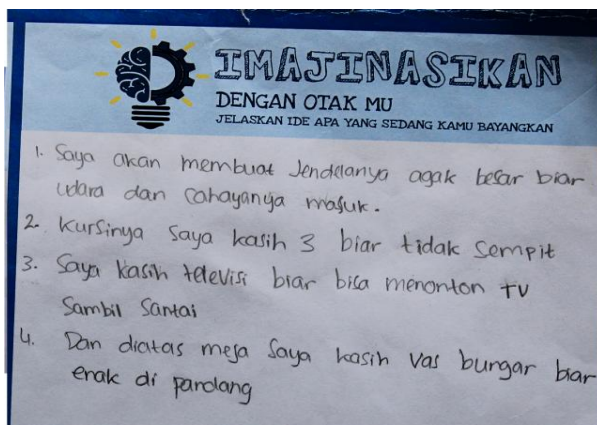 IMAJINASIKAN
DENGAN OTAK MU
JELASKAN IDE APA YANG SEDANG KAMU BAYANGKAN
1. Saya akan membuat Jendelanya agak besar biar
udara dan cahayanya masuk.
2. Kursinya Saya kasih 3 biar tidak sempit
3. Saya kasih televisi biar bisa menonton TV
Sambil Santai
4. Dan diatas meja Saya kasih vas bungar biar
enak di pandang